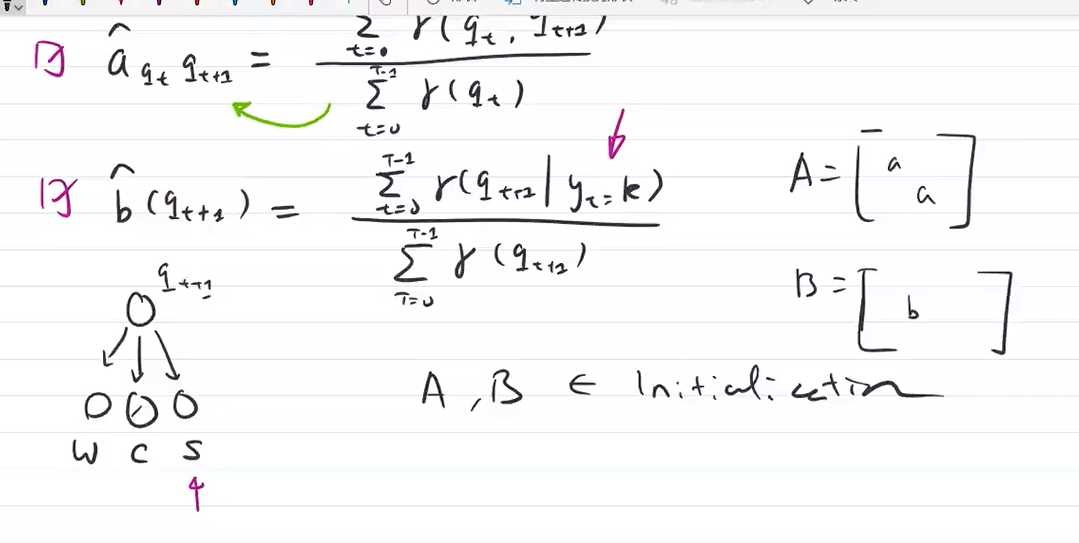 1) â q_t q_{t+1} = Σ_{t=0} γ(q_t, q_{t+1}) / Σ_{t=0}^{T-1} γ(q_t)
2) b̂(q_{t+1}) = Σ_{t=0}^{T-1} γ(q_{t+1} | y_t = k) / Σ_{T=0}^{T-1} γ(q_{t+1})
A = [ a a ]
B = [ b ]
q_{t+1}
A, B ∈ Initialization
W C S